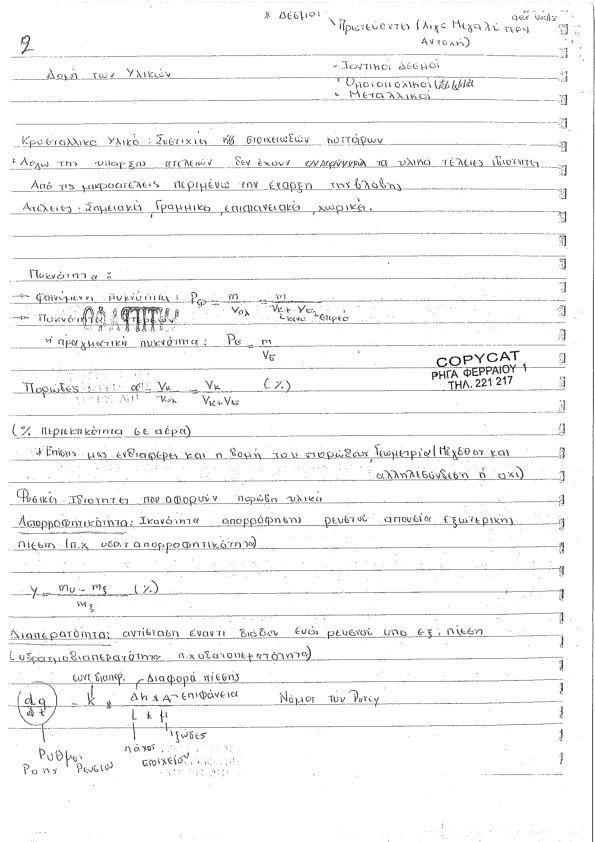 * Δεσμοί
Πρωτεύοντες (Λιγο Μεγαλύτερη
Αντοχή)
2
Δομή των Υλικών
- Ιοντικοί Δεσμοί
- Ομοιοπολικοί
* Μεταλλικοί
Κρυσταλλικό Υλικό: Συστιχία στοιχειωδών κυττάρων
* Λόγω της υπαρξης ατελειών δεν έχουν τα υλικά τέλειες ιδιότητες
Από τις μικροατέλειες περιμένω την έναρξη της βλάβης
Ατέλειες: Σημειακά, Γραμμικά, επιπανειακά, χωρικά.
Πυκνότητα:
→ Φαινόμενη πυκνότητα: Ρφ = m/Vολ = m/(Vε + Vε)
κενο στερεό
→ Πυκνότητα στερεών
ή πραγματική πυκνότητα: Ρε = m/Vε
COPYCAT
ΡΗΓΑ ΦΕΡΡΑΙΟΥ 1
ΤΗΛ. 221 217
Πορώδες: α = Vκ/Vολ = Vκ/(Vκ+Vε) (%)
(% περιεκτικότητα σε αέρα)
* Επίσης μας ενδιαφέρει και η δομή του πορώδους, Γεωμετρία/Μέγεθος και
αλληλεσύνδεση ή όχι)
Φυσικές Ιδιότητες που αφορούν πορώδη υλικά
Απορροφητικότητα: Ικανότητα απορρόφησης ρευστού απουσία εξωτερικής
πίεσης (π.χ υδατ απορροφητικότητα)
γ = (mυ - mξ)/mξ (%)
Διαπερατότητα: αντίσταση έναντι διόδου ενός ρευστού υπο εξ. πίεση
π.χ υδατοπερατότητα)
συντ διαπερ. Διαφορά πίεσης
dq/dt = k * (Δh * A)/(L * μ) επιφάνεια Νόμος του Darcy
ιξώδες
Ρυθμός πάχος
Ροής Ρευστού στοιχείου